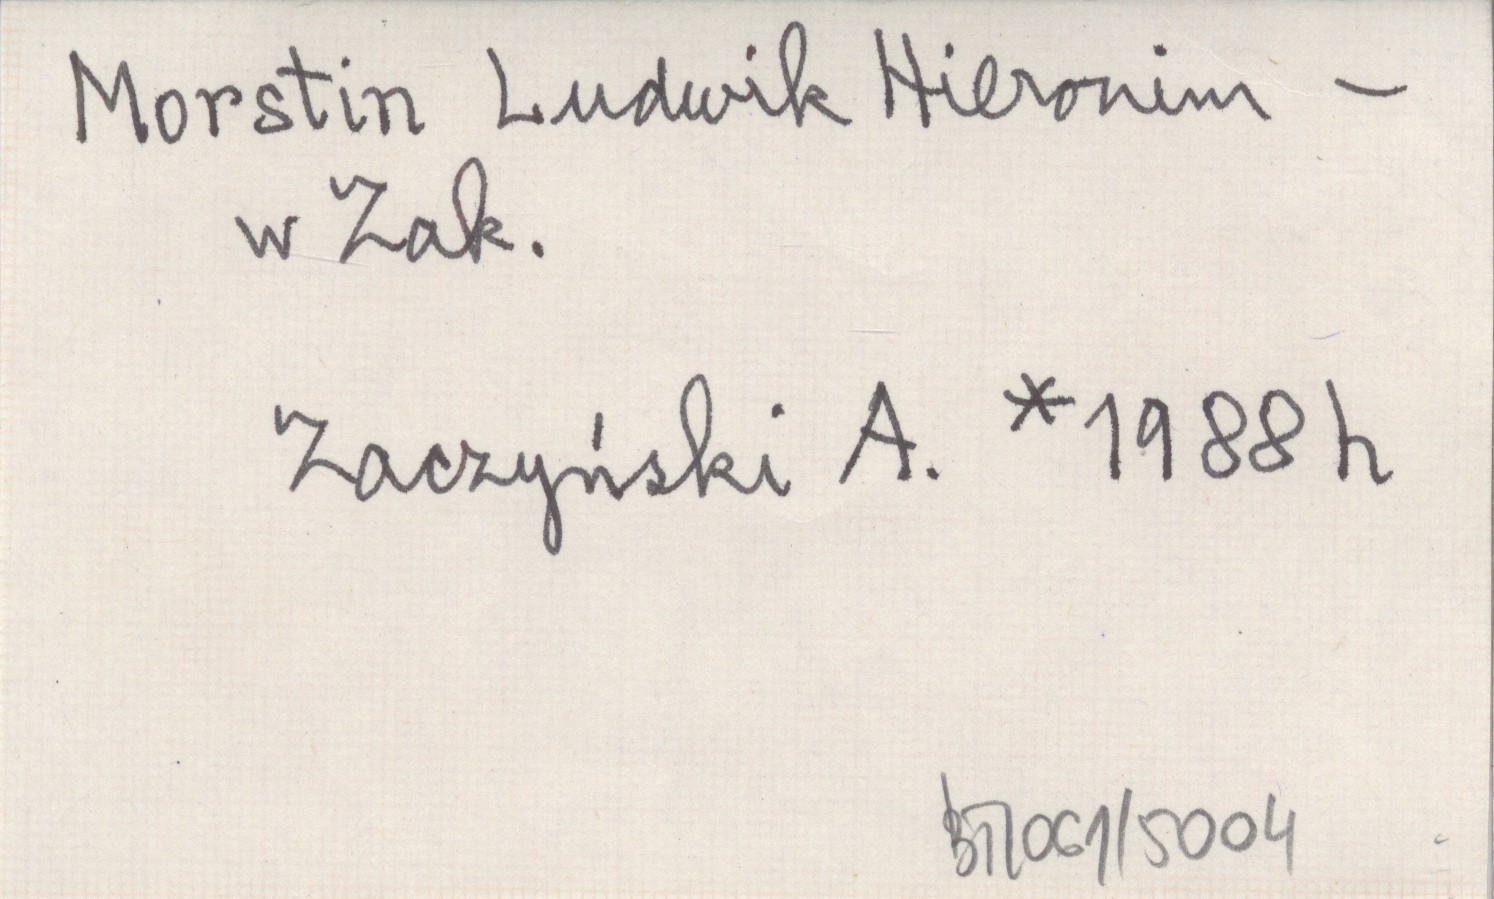 Morstin Ludwik Hieronim –
w Zak.
Zaczyński A. *1988h
061/5004